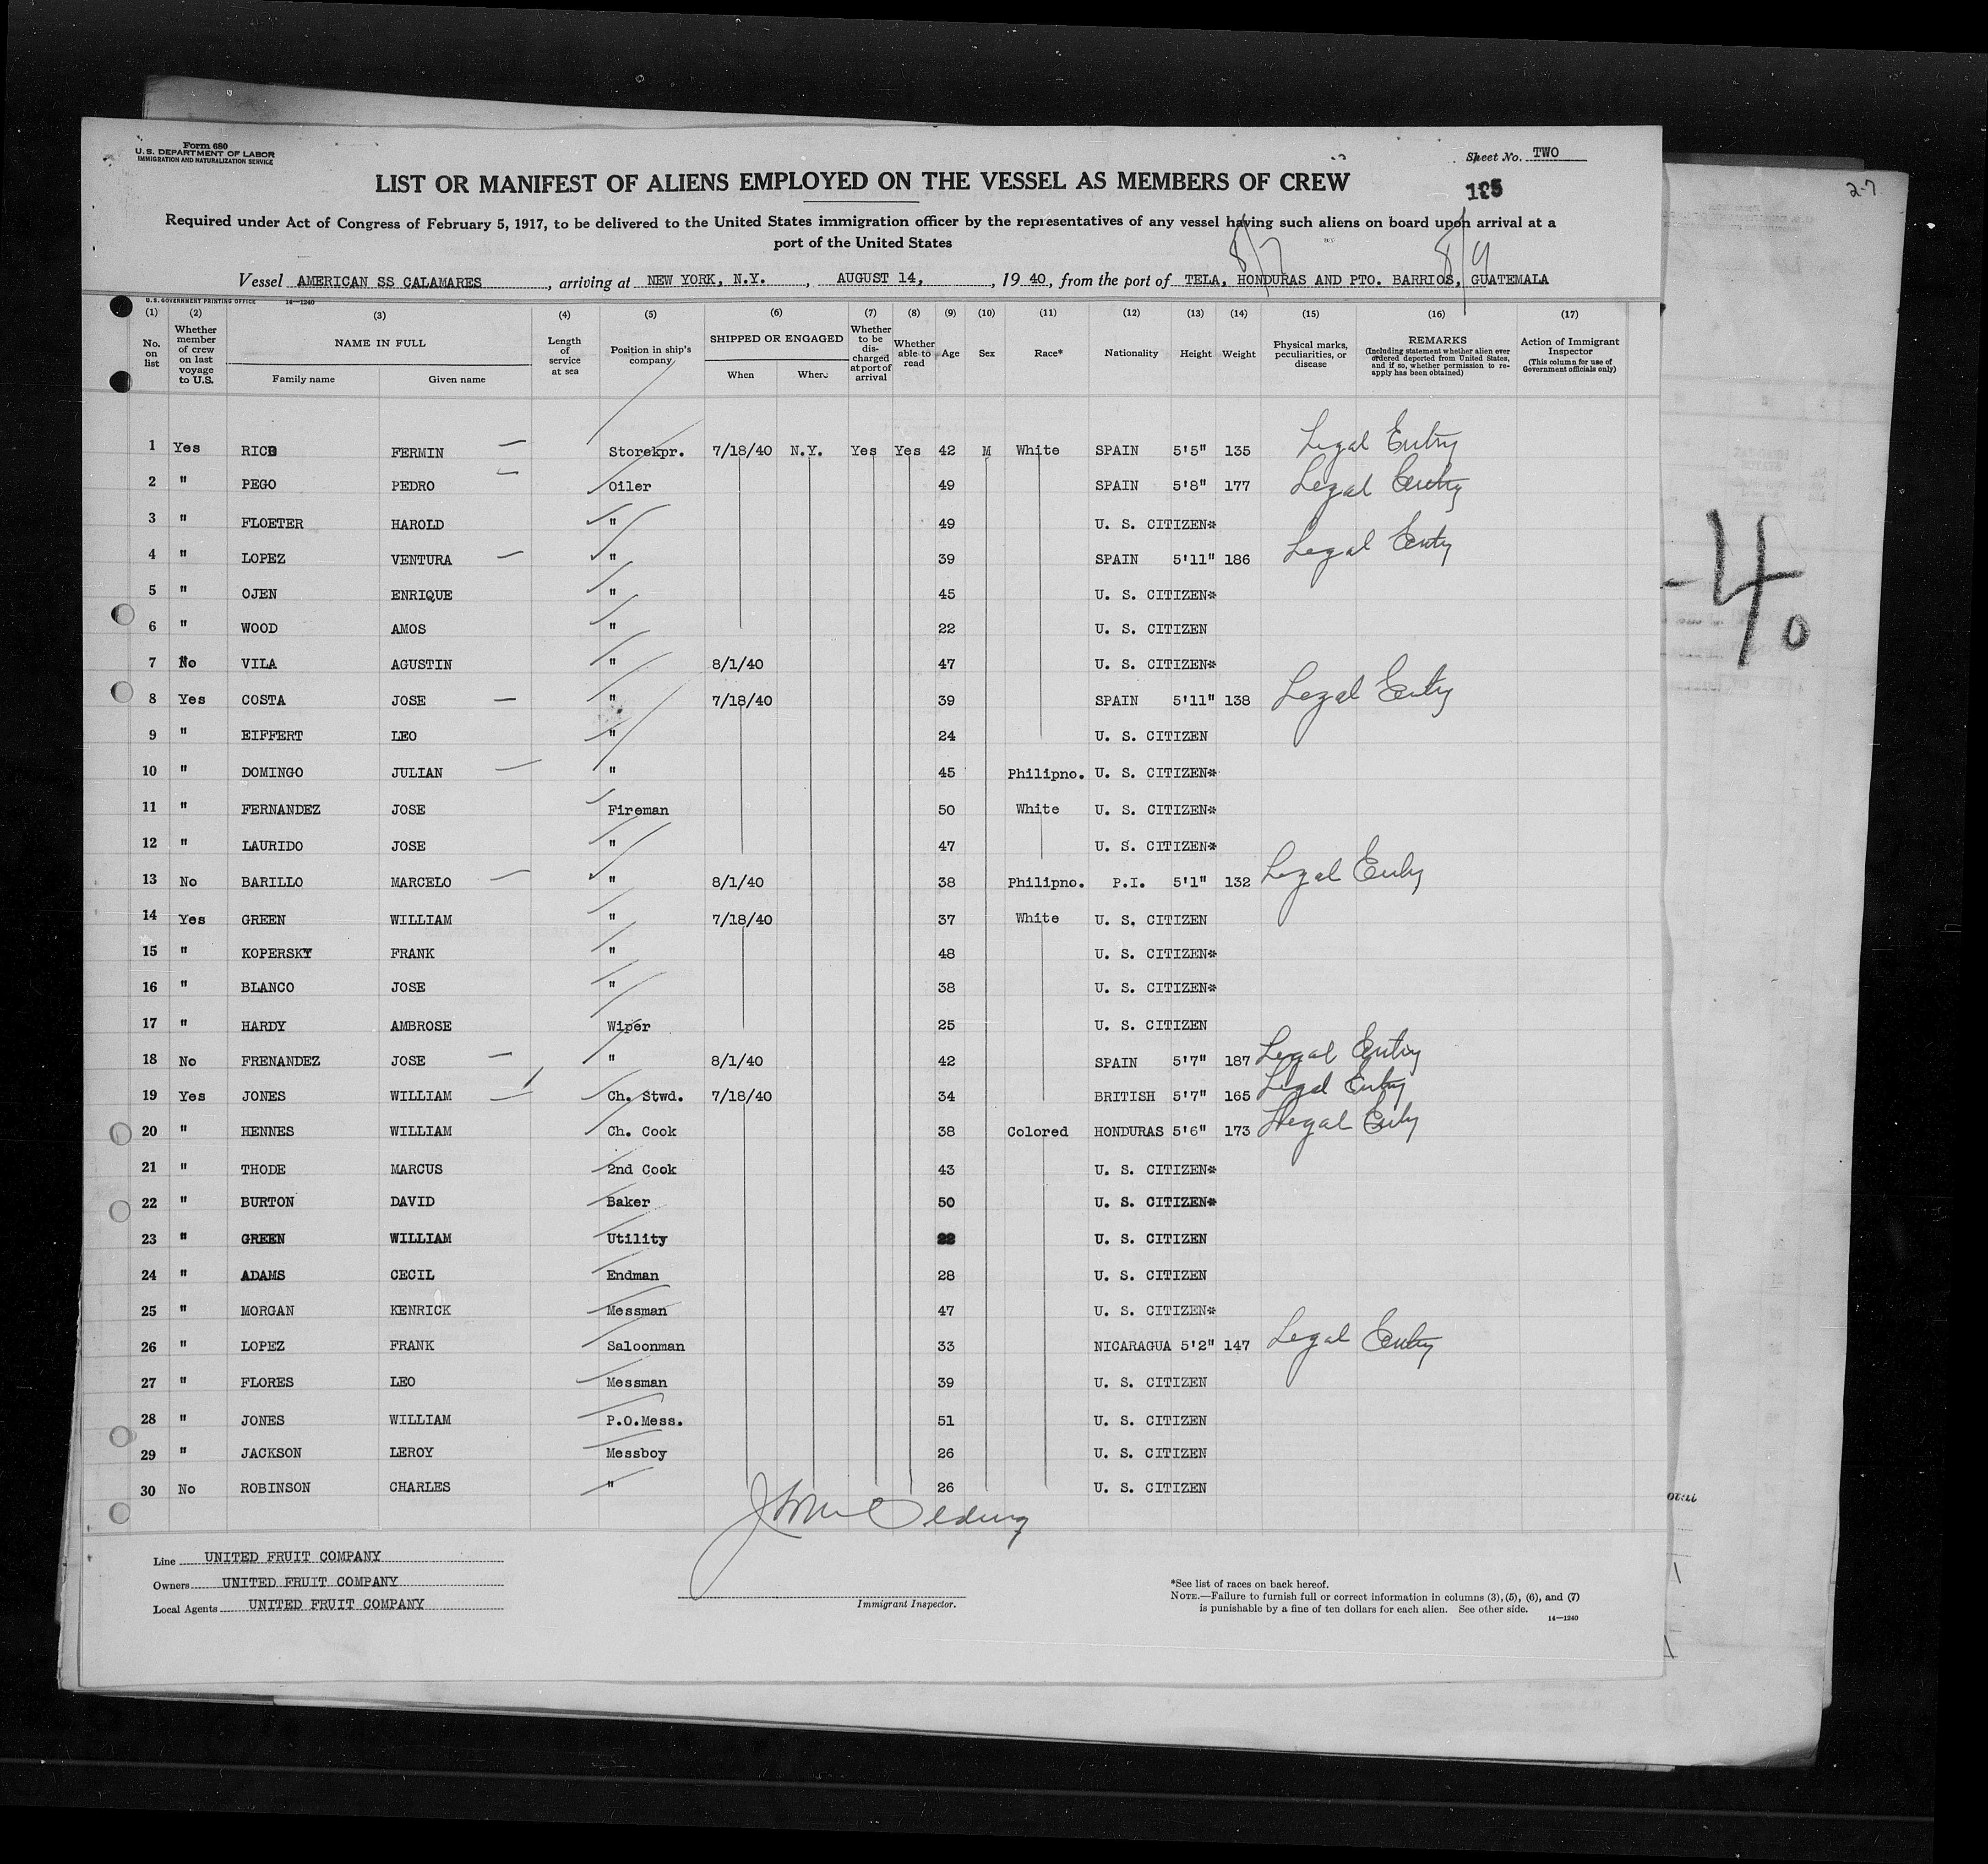 Form 680
U. S. DEPARTMENT OF LABOR
IMMIGRATION AND NATURALIZATION SERVICE
Sheet No. TWO
LIST OR MANIFEST OF ALIENS EMPLOYED ON THE VESSEL AS MEMBERS OF CREW
2-7
Required under Act of Congress of February 5, 1917, to be delivered to the United States immigration officer by the representatives of any vessel having such aliens on board upon arrival at a
port of the United States
8/7 8/9
Vessel AMERICAN SS CALAMARES, arriving at NEW YORK, N.Y., AUGUST 14, 1940, from the port of TELA, HONDURAS AND PTO. BARRIOS, GUATEMALA
U. S. GOVERNMENT PRINTING OFFICE 14—1240
(1) (2) (3) (4) (5) (6) (7) (8) (9) (10) (11) (12) (13) (14) (15) (16) (17)
No. on list
Whether member of crew on last voyage to U.S.
NAME IN FULL
Family name Given name
Length of service at sea
Position in ship's company
SHIPPED OR ENGAGED
When Where
Whether to be discharged at port of arrival
Whether able to read
Age Sex Race* Nationality Height Weight
Physical marks, peculiarities, or disease
REMARKS
(Including statement whether alien ever ordered deported from United States, and if so, whether permission to reapply has been obtained)
Action of Immigrant Inspector
(This column for use of Government officials only)
1 Yes RICO FERMIN — Storekpr. 7/18/40 N.Y. Yes Yes 42 M White SPAIN 5'5" 135 Legal Entry
2 " PEGO PEDRO — Oiler 49 SPAIN 5'8" 177 Legal Entry
3 " FLOETER HAROLD " 49 U. S. CITIZEN*
4 " LOPEZ VENTURA — " 39 SPAIN 5'11" 186 Legal Entry
5 " OJEN ENRIQUE " 45 U. S. CITIZEN*
6 " WOOD AMOS " 22 U. S. CITIZEN
7 No VILA AGUSTIN " 8/1/40 47 U. S. CITIZEN*
8 Yes COSTA JOSE — " 7/18/40 39 SPAIN 5'11" 138 Legal Entry
9 " EIFFERT LEO " 24 U. S. CITIZEN
10 " DOMINGO JULIAN — " 45 Philipno. U. S. CITIZEN*
11 " FERNANDEZ JOSE Fireman 50 White U. S. CITIZEN*
12 " LAURIDO JOSE " 47 U. S. CITIZEN*
13 No BARILLO MARCELO — " 8/1/40 38 Philipno. P.I. 5'1" 132 Legal Entry
14 Yes GREEN WILLIAM " 7/18/40 37 White U. S. CITIZEN
15 " KOPERSKY FRANK " 48 U. S. CITIZEN*
16 " BLANCO JOSE " 38 U. S. CITIZEN*
17 " HARDY AMBROSE Wiper 25 U. S. CITIZEN
18 No FRENANDEZ JOSE — " 8/1/40 42 SPAIN 5'7" 187 Legal Entry
19 Yes JONES WILLIAM — Ch. Stwd. 7/18/40 34 BRITISH 5'7" 165 Legal Entry
20 " HENNES WILLIAM Ch. Cook 38 Colored HONDURAS 5'6" 173 Legal Entry
21 " THODE MARCUS 2nd Cook 43 U. S. CITIZEN*
22 " BURTON DAVID Baker 50 U. S. CITIZEN*
23 " GREEN WILLIAM Utility 22 U. S. CITIZEN
24 " ADAMS CECIL Endman 28 U. S. CITIZEN
25 " MORGAN KENRICK Messman 47 U. S. CITIZEN*
26 " LOPEZ FRANK Saloonman 33 NICARAGUA 5'2" 147 Legal Entry
27 " FLORES LEO Messman 39 U. S. CITIZEN
28 " JONES WILLIAM P.O.Mess. 51 U. S. CITIZEN
29 " JACKSON LEROY Messboy 26 U. S. CITIZEN
30 No ROBINSON CHARLES " 26 U. S. CITIZEN
Line UNITED FRUIT COMPANY
Owners UNITED FRUIT COMPANY
Local Agents UNITED FRUIT COMPANY
Immigrant Inspector.
*See list of races on back hereof.
NOTE.—Failure to furnish full or correct information in columns (3), (5), (6), and (7)
is punishable by a fine of ten dollars for each alien. See other side.
14—1240
-40